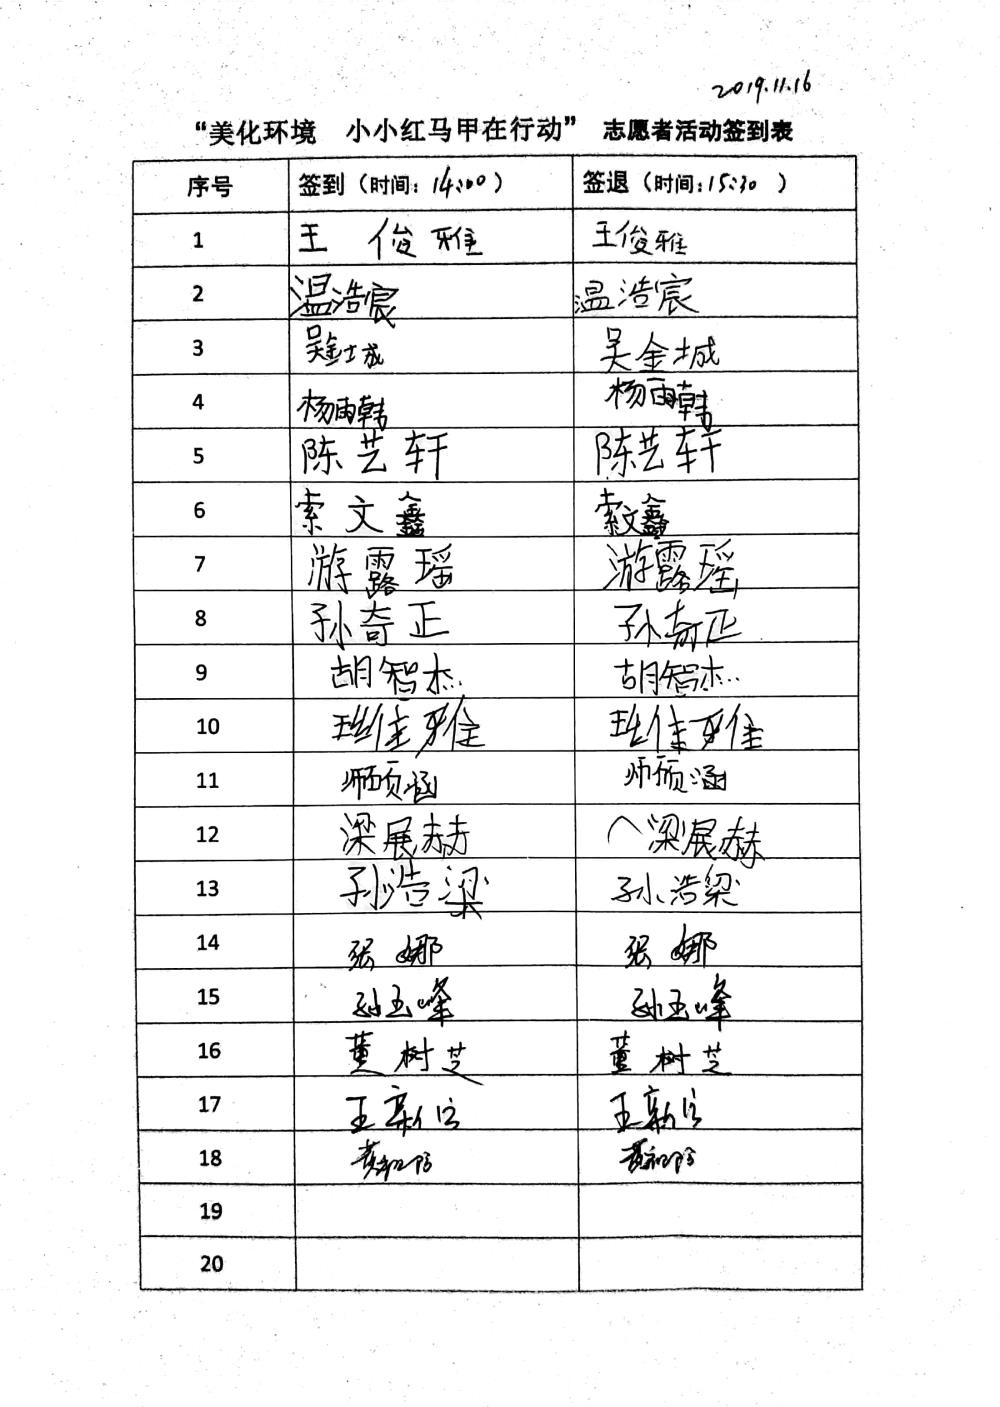 2019.11.16
“美化环境 小小红马甲在行动” 志愿者活动签到表
序号 签到（时间：14:00） 签退（时间：15:30 ）
1 王 俊雅 王俊雅
2 温浩宸 温浩宸
3 吴金城 吴金城
4 杨雨韩 杨雨韩
5 陈艺轩 陈艺轩
6 索文鑫 索文鑫
7 游露瑶 游露瑶
8 孙奇正 孙奇正
9 胡智杰 胡智杰
10 班佳雅 班佳雅
11 师硕涵 师硕涵
12 梁展赫 梁展赫
13 孙浩梁 孙浩梁
14 张娜 张娜
15 孙玉峰 孙玉峰
16 董树芝 董树芝
17 王新 王新
18 黄 黄
19
20